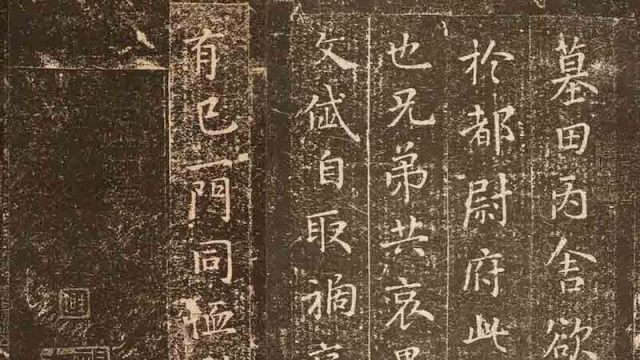 墓田丙舍欲
於都尉府此
也兄弟共哀
文岱自取禍
有已一門同恤